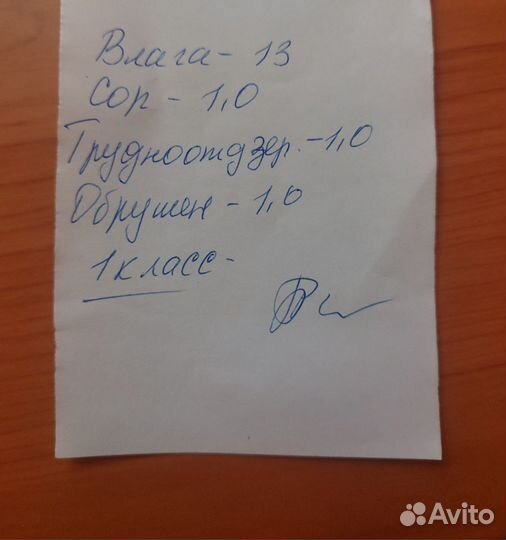 Влага - 13
Сор - 1,0
Трудноотдзер. - 1,0
Обрушен - 1,0
1 класс -
Avito